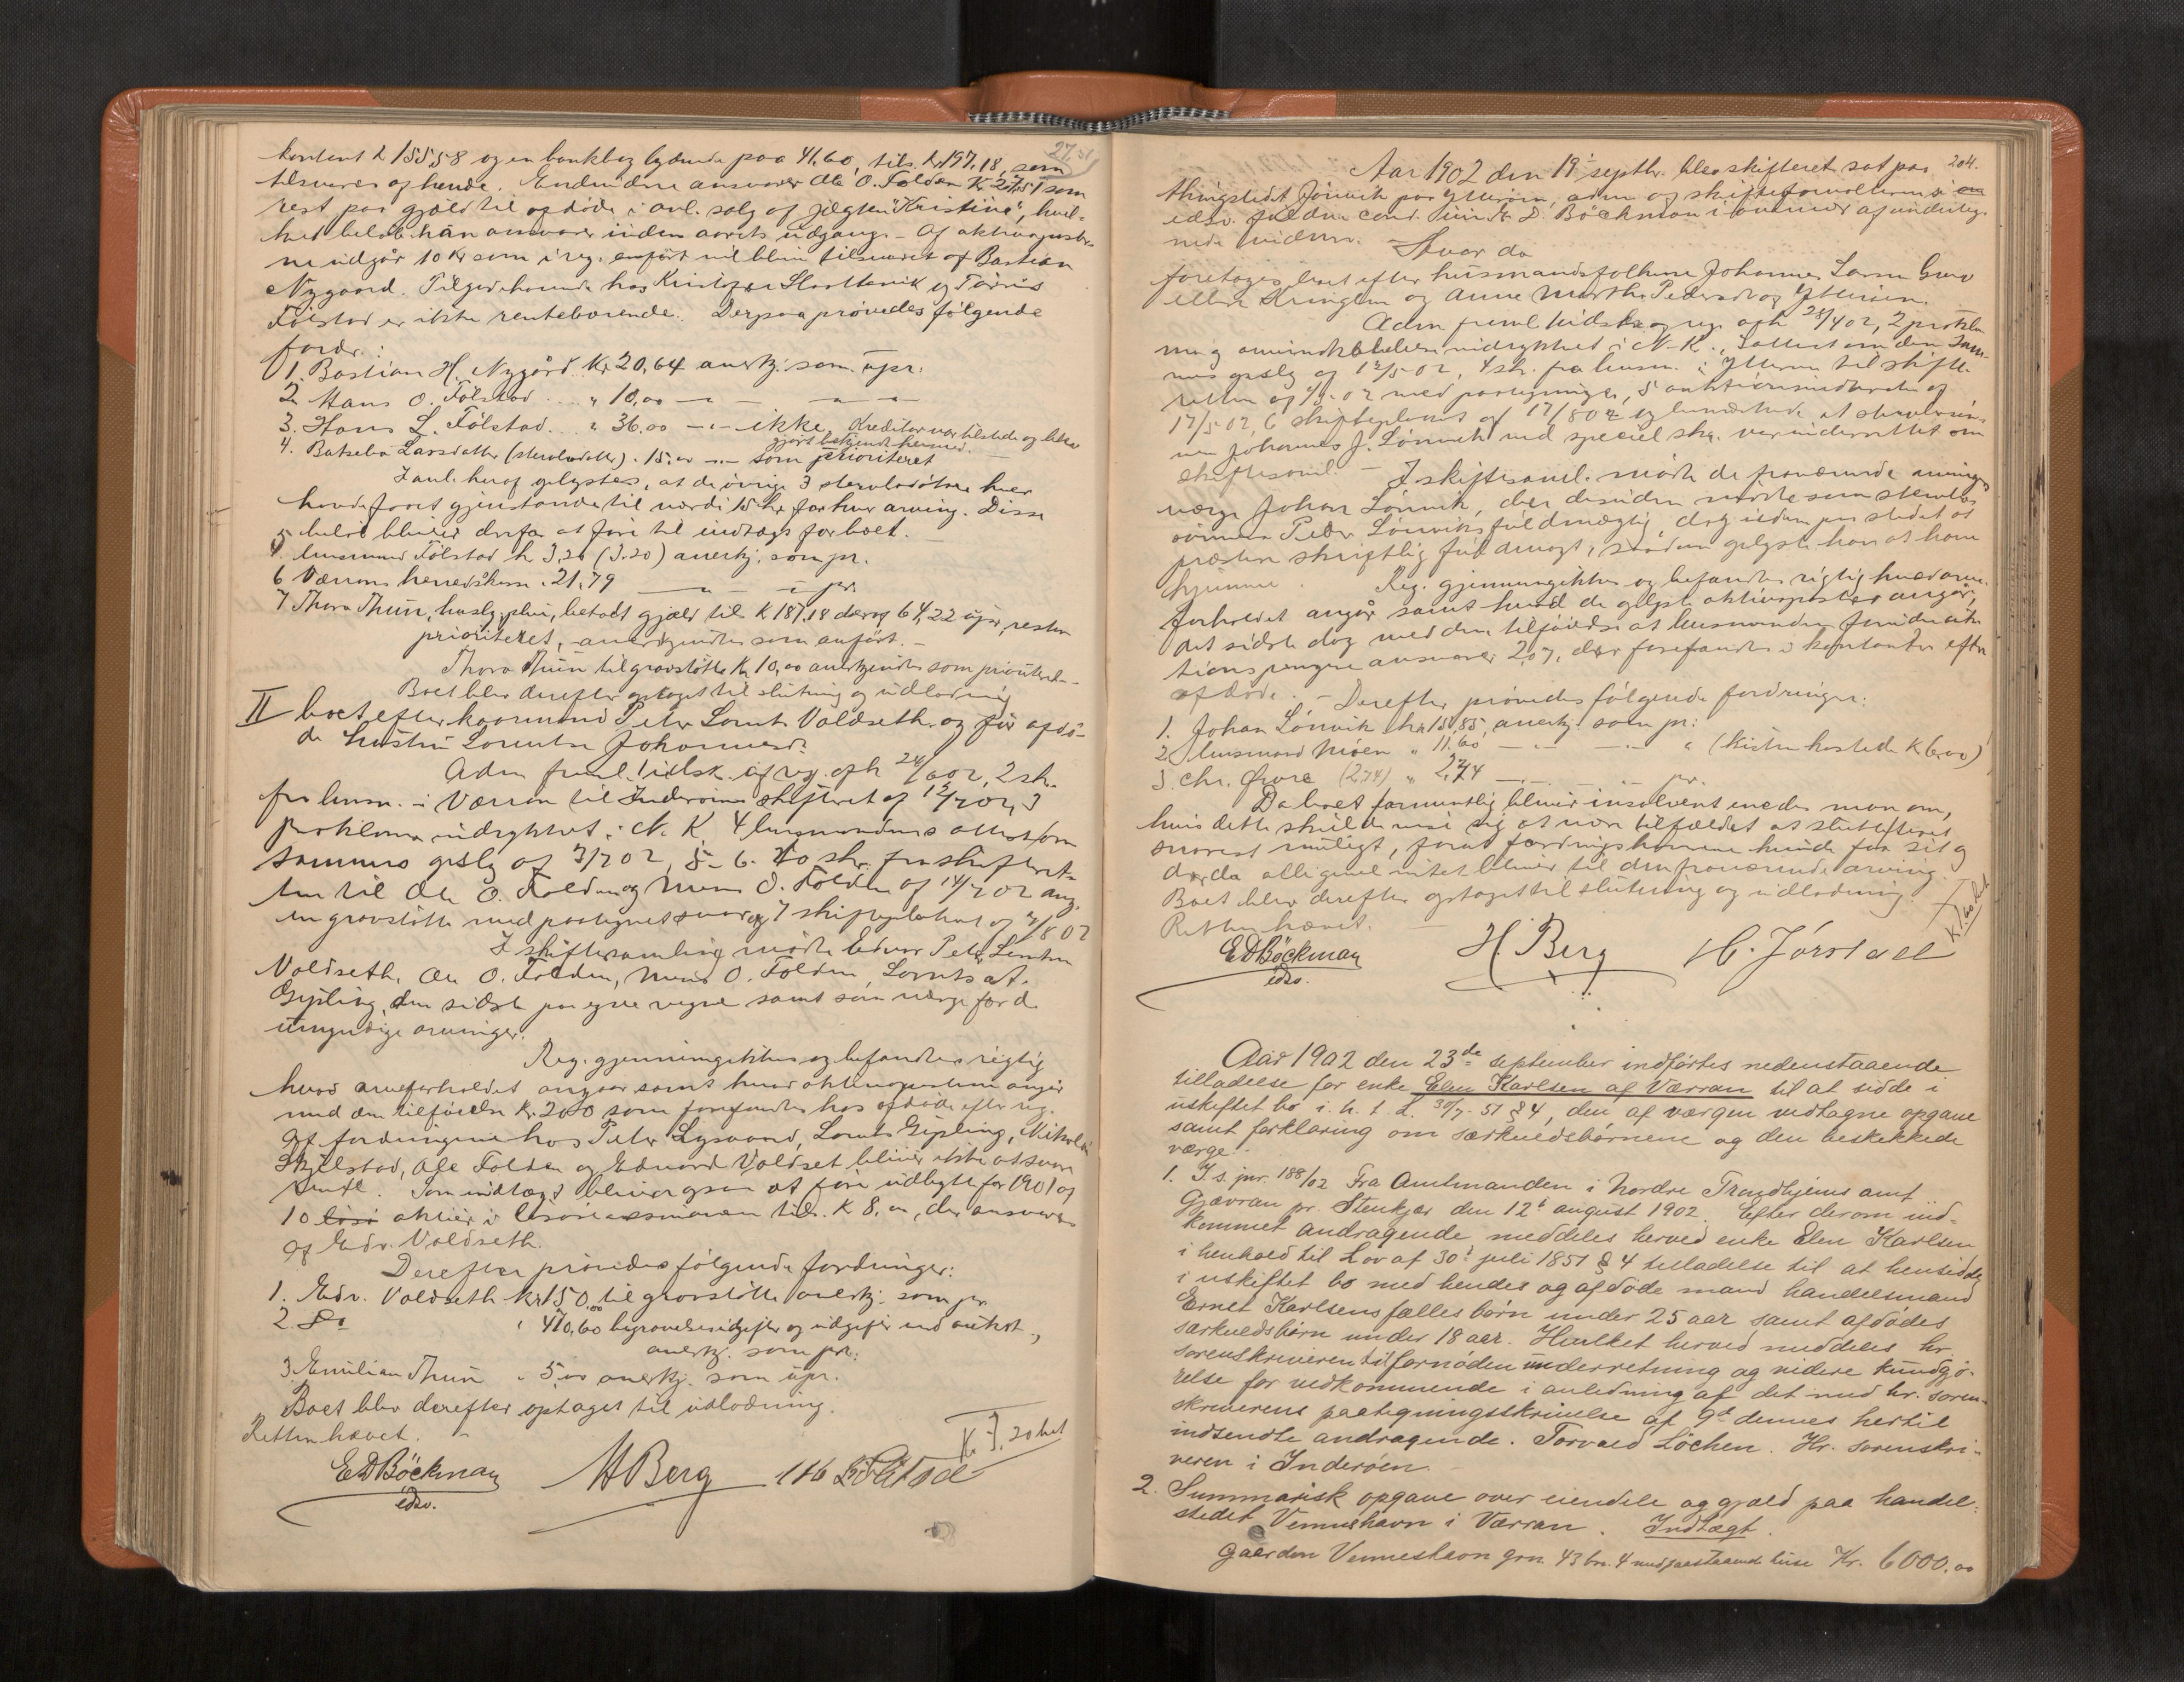 kontant k 155,58 og en bankbog lydende paa 41,60, tils. kr 197,18, som
tilsvares af hende. Endvidere ansvarer Ole O. Folden K 27,51 som
rest paa gjæld til afdøde i anl. salg af jægten "Kristine", hvil-
ket beløb han ansvarer inden aarets udgang. - Af aktivaposter-
ne udgår 10 Kr som i reg. anført vil blive tilsvaret af Bastian
Nygaard. Tilgodehavende hos Kristofer
Følstad er ikke rentebærende. Derpaa prøvedes følgende
fordr.:
1. Bastian H. Nygård Kr 20,64 anerkj. som upr.
2. Hans O. Følstad " 10,00 - " - - " -
3. Hans L. Følstad " 36.00 - " - ikke. Kreditor var tilstede og blev
gjort bekjendt hermed.
4. Batseba Larsdatter (stervbodatter) . 15,00 - " - som prioriteret
I anl. heraf oplystes, at de øvrige 3 stervbodøtre hver
havde faaet gjenstande til værdi 15 kr for hver arving. Disse
beløb bliver derfor at føre til indtægt for boet.
5 lensmand Følstad k 3.20 (3.20) anerkj. som pr.
6 Værrans herredskasse " 21,79 - " - - " - pr
7 Thora Thun, huslg. pleie, betalt gjæld til K 187,18 deraf 64,22 upr, resten
prioriteret, - anerkjendtes som anført. -
Thora Thun til gravstøtte Kr 10,00 anerkjendtes som prioriteret -
Boet blev derefter optaget til slutning og udlodning
II boet efter kaarmand Peter Lornts Voldseth og før afdø-
de hustru Lorentse Johannesd.
Adm freml. 1 udsk. af reg. oph 24/602, 2 skr.
fra lensm. i Værran til Inderøens skifteret af 12/702, 3
proklama indrykket i N. K. 4 lensmandens attest om
sammes oplg af 7/702, 5 - 6. to skr. fra skifteret-
ten til Ole O. Folden og Mons O. Folden af 14/702 ang.
en gravstøtte med paategnet svar og 7 skifteplakat af
I skiftesamling mødte Edvar Peter Lorntsen
Voldseth, Ole O. Folden, Mons O. Folden, Lornts At.
Gipling, den sidste paa egne vegne samt som værge for de
umyndige arvinger.
Reg. gjennemgikkes og befandtes rigtig
hvad arveforholdet angaar samt hvad aktivaposterne angår
med den tilføielse Kr. 20.00 som forefandtes hos afdøde efter reg.
Af fordringerne hos Peter Lysvand, Lornts Gipling, Nikolai
Skjelstad, Ole Folden og Edvard Voldset bliver ikke at svare
rente. Som indtægt bliver ogsaa at føre udbytte for 1901 af
10 aktier i tils. K 8.00, der ansvares
af Edv. Voldseth.
Derefter prøvedes følgende fordringer:
1. Edv. Voldseth Kr 150,00 til gravstøtte anerkj. som pr
2. Do " 410,60 begravelsesudgifter og udgifter ved auktion,
anerkj. som pr.
3. Emilian Thun " 5,00 anerkj. som upr.
Boet blev derefter optaget til udlodning.
Retten hævet. -
K. 3,20 bet
EDBöckman H Berg
edsv.
204.
Aar 1902 den 19de septbr. blev skifteret sat paa
thingstedet Jønvik paa Ytterøen, adm og skifteforvalteren
edsv. fuldm. cand. jur. E. D. Böckman i overvær af underteg-
nede vidner. Hvor da
foretoges boet efter husmandsfolkene Johannes Larsen
eller Kringlen og Anne Martha Pedersdtr af Ytterøen.
Adm freml 1 udskr. af reg. oph 28/402, 2 prokla-
ma og indrykket i N-K., 3 attest om den sam-
mes oplg af 12/502, 4 skr. fra lensm. i Ytterøen til skifte-
retten af med paategninger, 5 auktionsudskrift af
17/502, 6 skifteplakat af 17/802 og bemærkede at
Johannes J. Lønvik ved speciel skr. var underrettet om
skiftesaml. - I skiftesaml. mødte de fraværende arvinges
værge Johan Lønvik, der desuden mødte som stervbo
sønnen Peder Lønviks fuldmægtig, dog uden paa stedet at
præstere skriftlig fuldmagt, sådan oplyste han at have
hjemme. Reg. gjennemgikkes og befandtes rigtig hvad arve-
forholdet angår samt hvad de oplyste aktivaposter angår,
det sidste dog med den tilføielse at lensmanden foruden auk-
tionspengene ansvarer 2,07, der forefandtes i kontanter efter
afdøde. - Derefter prøvedes følgende fordringer:
1. Johan Lønvik kr 151,85, anerkj. som pr:
2. lensmand Moen " 11.60 - " - - " - " (kisten kostede K 6,00)
3. Chr. Øvre (2,74) " 2,74 - " - - " - pr.
Da boet formentlig bliver insolvent enedes man om,
hvis dette skulde vise sig at være tilfældet at slutte boet
snarest muligt, forat fordringshaverne kunde faa sit og
da da alligevel intet bliver til den fraværende arving.
Boet blev derefter optaget til slutning og udlodning.
Retten hævet.
EDBöckman H. Berg H. Jørstad
edsv.
Aar 1902 den 23de september indførtes nedenstaaende
tilladelse for enke Elen Karlsen af Værran til at sidde i
uskiftet bo i. h. t. L. 30/7-51 § 4, den af værgen vedtagne opgave
samt forklaring om særkuldsbørnene og den beskikkede
værge:
1. I. s. jnr. 188/02 Fra Amtmanden i Nordre Trondhjems amt.
Gjævran pr. Stenkjær den 12te august 1902. Efter derom ind-
kommet andragende meddeles herved enke Elen Karlsen
i henhold til Lov af 30te juli 1851 § 4 tilladelse til at hensidde
i uskiftet bo med hendes og afdøde mand handelsmand
Ernet Karlsens fælles børn under 25 aar samt afdødes
særkuldsbørn under 18 aar. Hvilket herved meddeles hr.
sorenskriveren til fornøden underretning og videre kundgjø-
relse for vedkommende i anledning af det med hr. soren-
skriverens paategningsskrivelse af 9de dennes hertil
indsendte andragende. Torvald Löchen. Hr. sorenskri-
veren i Inderøen.
2. Summarisk opgave over eiendele og gjæld paa handel-
stedet Venneshavn i Værran. Indtægt.
Gaarden Venneshavn gno. 43 bn. 4 med paastaaende huse Kr. 6000,00